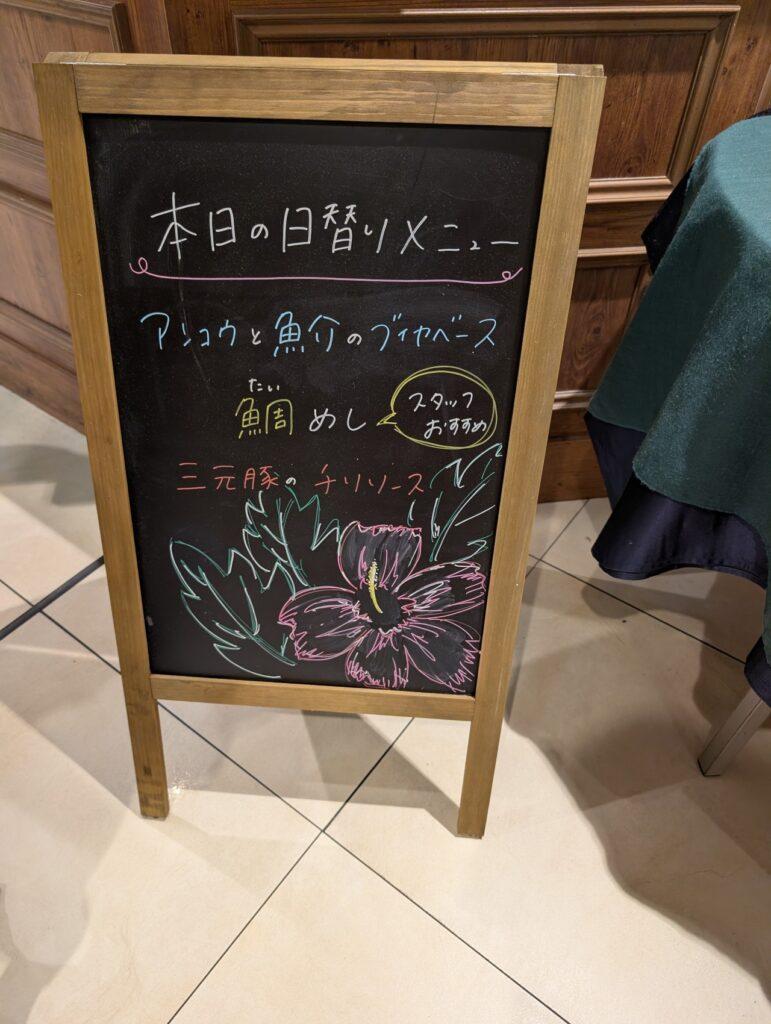 本日の日替りメニュー
アンコウと魚介のブイヤベース
たい
鯛めし
スタッフ
おすすめ
三元豚のチリソース